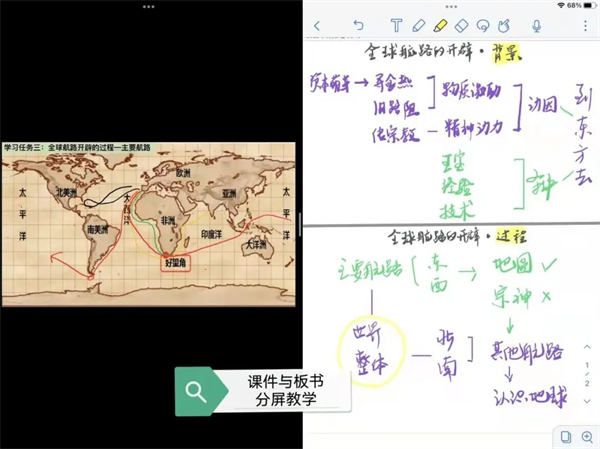 68%
学习任务三:全球航路开辟的过程—主要航路
太平洋
北美洲
大西洋
欧洲
亚洲
太平洋
非洲
南美洲
印度洋
大洋洲
好望角
课件与板书
分屏教学
全球航路的开辟·背景
资本萌芽→寻金热
旧路阻
物质激励
传宗教—精神动力
动因
到东方去
王室
经验
技术
条件
全球航路的开辟·过程
主要航路
东
西
→地圆✓
宗神×
世界
整体
—
南
其他航路
认识地球
1/2